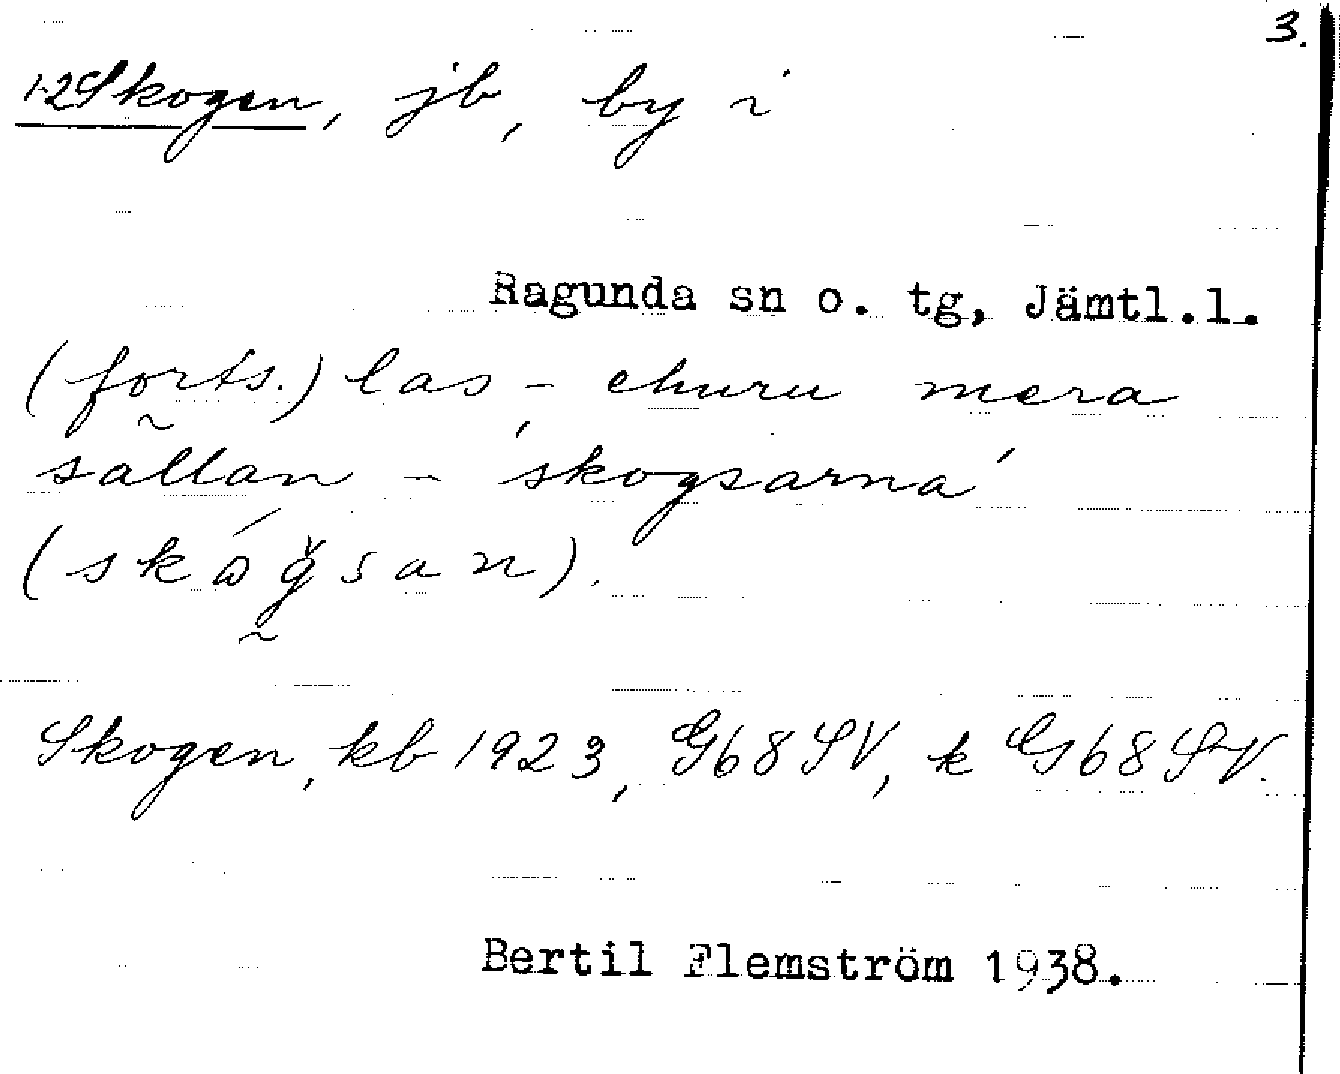 3.
1-2 Skogen, jb, by i
Ragunda sn o. tg, Jämtl.l.
(forts.) las, - ehuru mera
sällan - 'skogsarna'
(skógsan).
Skogen, kb 1923, G68SV, k G68SV.
Bertil Flemström 1938.